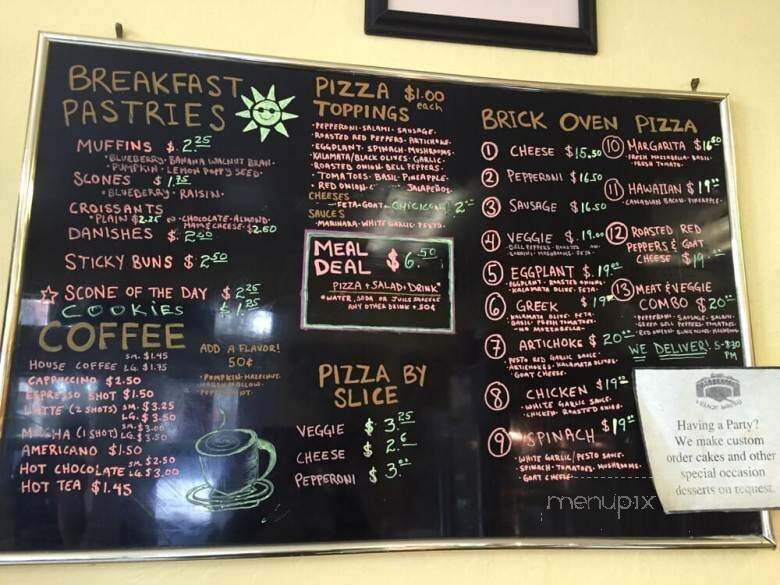 BREAKFAST
PASTRIES
MUFFINS $ 2.25
• BLUEBERRY • BANANA WALNUT BRAN •
• PUMPKIN • LEMON POPPY SEED •
SCONES $ 1.75
• BLUEBERRY • RAISIN •
CROISSANTS
• PLAIN $2.25 • CHOCOLATE • ALMOND •
HAM & CHEESE • $2.60
DANISHES $
STICKY BUNS $ 2.50
SCONE OF THE DAY $ 2.25
COOKIES $ 1.25
COFFEE
SM. $1.45
HOUSE COFFEE LG. $1.75
CAPPUCCINO $2.50
ESPRESSO SHOT $1.50
LATTE (2 SHOTS) SM. $3.25
LG. $3.50
SM. $3.00
MOCHA (1 SHOT) LG. $3.50
AMERICANO $1.50
SM. $2.50
HOT CHOCOLATE LG. $3.00
HOT TEA $1.45
ADD A FLAVOR!
50¢
• PUMPKIN • HAZELNUT •
MARSHMALLOW •
PIZZA $1.00
TOPPINGS each
• PEPPERONI • SALAMI • SAUSAGE •
• ROASTED RED PEPPERS • ARTICHOKE •
• EGGPLANT • SPINACH • MUSHROOMS •
• KALAMATA/BLACK OLIVES • GARLIC •
• ROASTED ONION • BELL PEPPERS •
• TOMATOES • BASIL • PINEAPPLE •
• RED ONION • JALAPEÑOS •
CHEESES
FETA • GOAT • CHICKEN! 2
SAUCES
• MARINARA • WHITE GARLIC • PESTO •
MEAL
DEAL $ 6.50
PIZZA + SALAD + DRINK*
* WATER, SODA OR JUICE
ANY OTHER DRINK + 50¢
PIZZA BY
SLICE
VEGGIE $ 3.25
CHEESE $
PEPPERONI $ 3.00
BRICK OVEN PIZZA
1 CHEESE $15.50
2 PEPPERONI $16.50
3 SAUSAGE $16.50
4 VEGGIE $19.00
5 EGGPLANT $19.00
• EGGPLANT • ROASTED ONION •
• KALAMATA OLIVE • FETA •
6 GREEK $19
• KALAMATA OLIVE • FETA •
• BASIL • FRESH TOMATOES •
• NO MARINARA •
7 ARTICHOKE $20
• PESTO RED GARLIC SAUCE •
• ARTICHOKES • KALAMATA OLIVES •
• GOAT CHEESE •
8 CHICKEN $19
• WHITE GARLIC SAUCE •
• CHICKEN • ROASTED ONION •
9 SPINACH $19
• WHITE GARLIC/PESTO SAUCE •
• SPINACH • TOMATOES • MUSHROOMS •
• GOAT CHEESE •
10 MARGARITA $16.50
• FRESH MOZZARELLA • BASIL •
• FRESH TOMATO •
11 HAWAIIAN $19
• CANADIAN BACON • PINEAPPLE •
12 ROASTED RED
PEPPERS & GOAT
CHEESE $19
13 MEAT & VEGGIE
COMBO $20
• PEPPERONI • SAUSAGE • SALAMI •
GREEN BELL PEPPERS • TOMATOES •
RED ONION • BLACK OLIVES •
WE DELIVER! 5-8:30
PM
Having a Party?
We make custom
order cakes and other
special occasion
desserts on request.
menupix